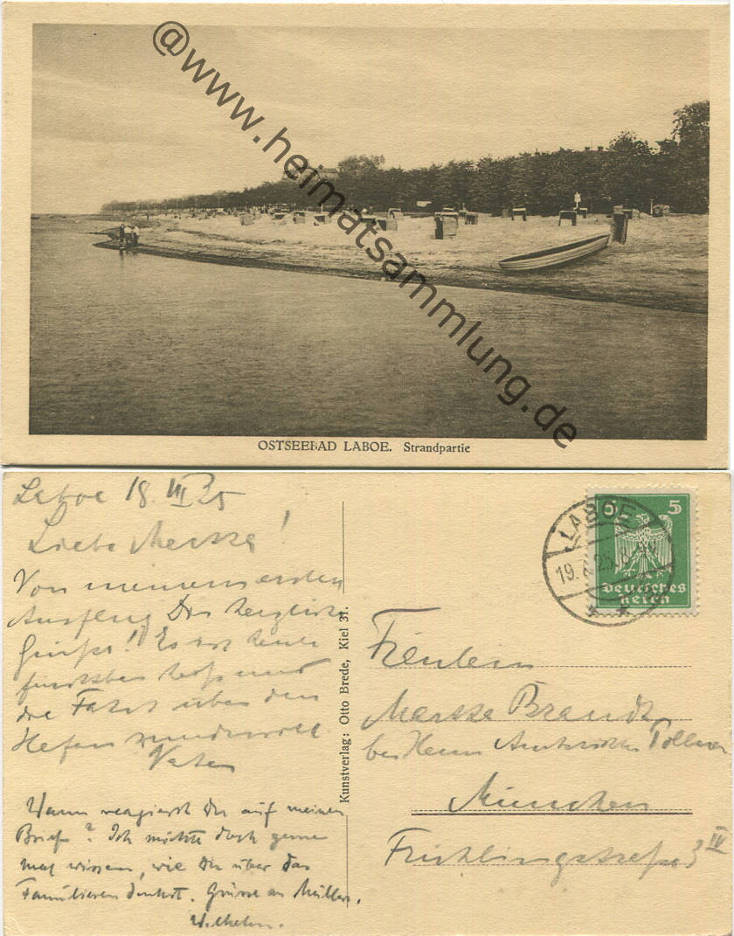 @www.heimatsammlung.de
OSTSEEBAD LABOE. Strandpartie
Laboe 18. VII 25
Liebe !
Von meinem ersten
Ausflug Dir herzliche
Grüße! Es ist heute
furchtbar heiß und
die Fahrt über den
Hafen wundervoll
Vater
Wann reagierst Du auf meinen
Brief? Ich möchte doch gerne
mal wissen, wie Du über das
denkst. Grüsse an Müllers.
Wilhelm.
Kunstverlag: Otto Brede, Kiel 31.
LABOE
19. 25
5 5
Deutsches
Reich
Fräulein
Brandt
bei Herrn
München
Frühlingstraße 3 IV